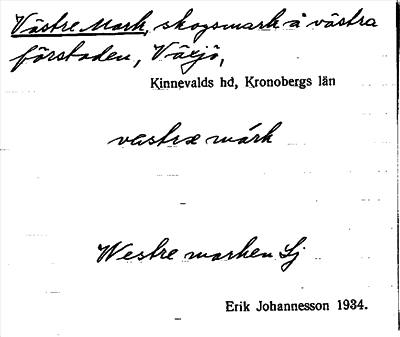 Västre Mark, skogsmark å västra
förstaden, Växjö,
Kinnevalds hd, Kronobergs län
vastræ márk
Westre marken Lj
Erik Johannesson 1934.